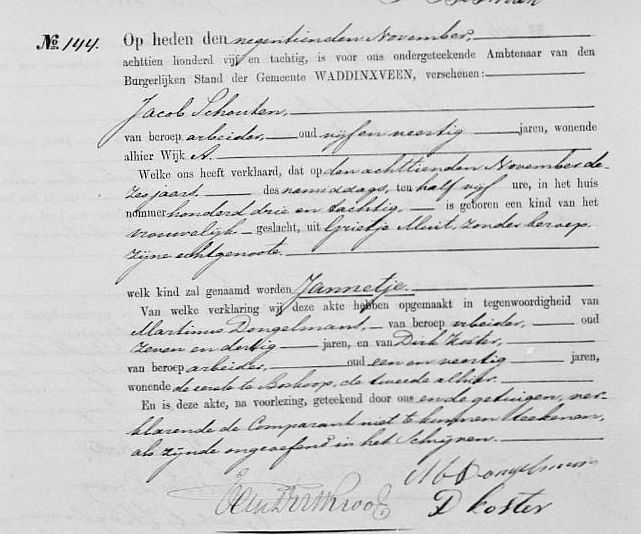 No. 144. Op heden den negentienden November,
achttien honderd vijf en tachtig, is voor ons ondergeteekende Ambtenaar van den
Burgerlijken Stand der Gemeente WADDINXVEEN, verschenen:
Jacob Schouten,
van beroep arbeider, oud vijf en veertig jaren, wonende
alhier Wijk A.
Welke ons heeft verklaard, dat op den achttienden November de-
zes jaars, des namiddags, ten half vijf ure, in het huis
nommer honderd drie en tachtig, is geboren een kind van het
vrouwelijk geslacht, uit Grietje Muit, zonder beroep,
zijne echtgenoote.
welk kind zal genaamd worden Jannetje.
Van welke verklaring wij deze akte hebben opgemaakt in tegenwoordigheid van
Martinus Dongelmans, van beroep arbeider, oud
zeven en dertig jaren, en van Dirk Koster,
van beroep arbeider, oud een en veertig jaren,
wonende de eerste te Boskoop, de tweede alhier.
En is deze akte, na voorlezing, geteekend door ons en de getuigen, ver-
klarende de Comparant niet te kunnen teekenen,
als zijnde ongeoefend in het Schrijven.
M Dongelmans
D Koster